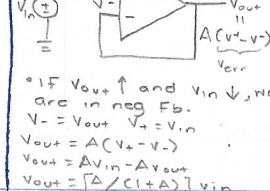 Vin
V-
Vout
=
A(V+-V-)
Verr
• If Vout ↑ and Vin ↓, we
are in neg Fb.
V- = Vout V+ = Vin
Vout = A(V+ - V-)
Vout = AVin - AVout
Vout = [A/(1+A)] Vin